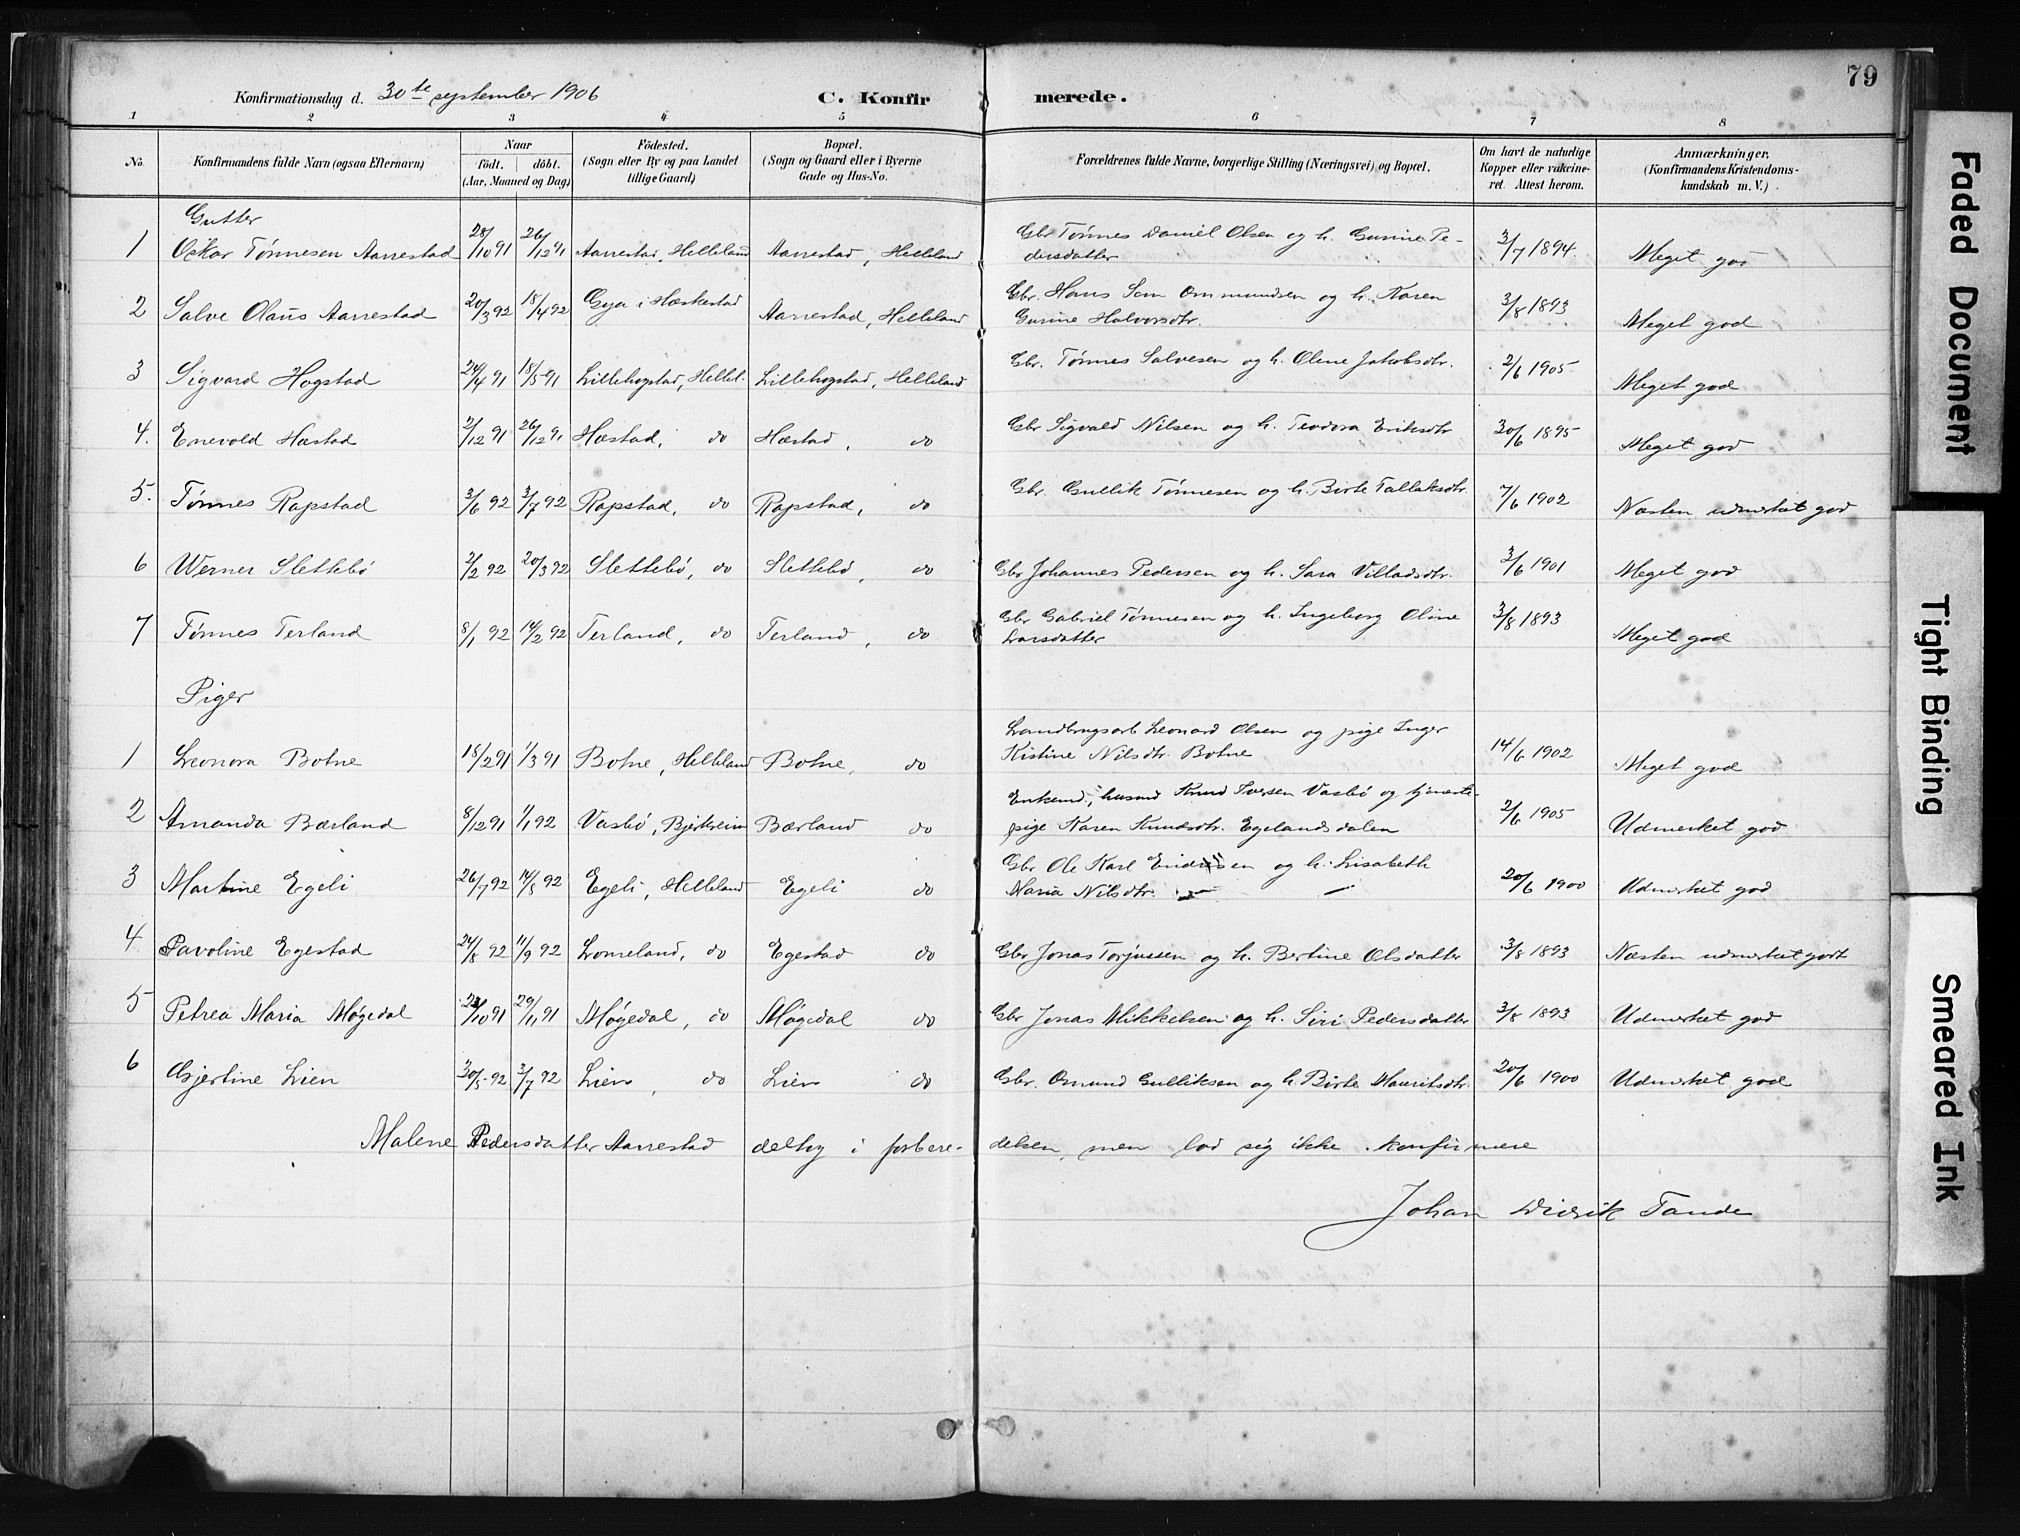 79
Konfirmationsdag d. 30te september 1906 C. Konfirmerede.
1 2 3 4 5 6 7 8
No. Konfirmandens fulde Navn (ogsaa Efternavn) Naar födt. döbt. (Aar, Maaned og Dag) Födested. (Sogn eller By og paa Landet tillige Gaard) Bopæl. (Sogn og Gaard eller i Byerne Gade og Hus-No. Forældrenes fulde Navne, borgerlige Stilling (Næringsvei) og Bopæl. Om havt de naturlige Kopper eller vakcineret. Attest herom. Anmærkninger, (Konfirmandens Kristendomskundskab m. V.)
Gutter
1 Oskar Tønnesen Aarrestad 28/10 91 26/12 91 Aarrestad, Helleland Aarrestad, Helleland Gbr Tønnes Daniel Olsen og h. Gurine Pedersdatter 3/7 1894 Meget god
2 Salve Olaus Aarrestad 20/3 92 18/4 92 Gya i Hæskestad Aarrestad, Helleland Gbr. Hans Sem Ommundsen og h. Karen Gurine Halvorsdtr. 3/8 1893 Meget god
3 Sigvard Hogstad 24/4 91 18/5 91 Lillehogstad, Hellel. Lillehogstad, Helleland Gbr. Tønnes Salvesen og h. Olene Jakobsdtr. 2/6 1905 Meget god
4. Enevold Hæstad 2/12 91 26/12 91 Hæstad, do Hæstad, do Gbr Sigvald Nilsen og h. Teodora Eriksdtr 30/6 1895 Meget god
5. Tønnes Rapstad 3/6 92 3/7 92 Rapstad, do Rapstad, do Gbr. Gullik Tønnesen og h. Birte Tallaksdtr. 7/6 1902 Næsten udmerket god
6 Werner Slettebø 2/2 92 20/3 92 Slettebø, do Slettebø, do Gbr Johannes Pedersen og h. Sara Villadsdtr. 3/6 1901 Meget god
7 Tønnes Terland 8/1 92 14/2 92 Terland, do Terland, do Gbr Gabriel Tønnesen og h. Ingeborg Oline Larsdatter 3/8 1893 Meget god
Piger
1 Leonora Botne 18/2 91 1/3 91 Botne, Helleland Botne, do Landbrugsarb Leonard Olsen og pige Inger Kistine Nilsdtr. Botne 14/6 1902 Meget god
2 Amanda Bærland 8/12 91 1/1 92 Vasbø, Bjerkreim Bærland do Enkemd, husmd Knud Iversen Vasbø og tjenestepige Karen Knudsdtr. Egelandsdalen 2/6 1905 Udmerket god
3 Martine Egeli 26/7 92 14/8 92 Egeli, Helleland Egeli do Gbr Ole Karl Endresen og h. Lisabeth Maria Nilsdtr. 20/6 1900 Udmerket god
4 Pavoline Egestad 24/8 92 11/9 92 Lomeland, do Egestad do Gbr Jonas Torjussen og h. Bertine Olsdatter 3/8 1893 Næsten udmerket godt
5 Petrea Maria Møgedal 23/10 91 29/11 91 Møgedal, do Møgedal do Gbr Jonas Mikkelsen og h. Siri Pedersdatter 3/8 1893 Udmerket god
6 Gjertine Lien 30/5 92 3/7 92 Lien, do Lien do Gbr. Omund Gulliksen og h. Birte Mauritsdtr. 20/6 1900 Udmerket god
Malene Pedersdatter Aarrestad deltog i forberedelsen, men lod sig ikke konfirmere
Johan Didrik Tande
Faded Document
Tight Binding
Smeared Ink